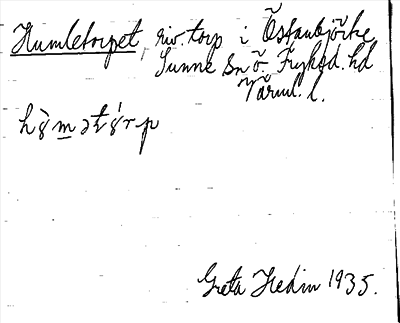 Humletorpet, riv. torp i Östanbjörke
Sunne Sn ö. Fryksd. hd
Värml. l.
Greta Hedin 1935.